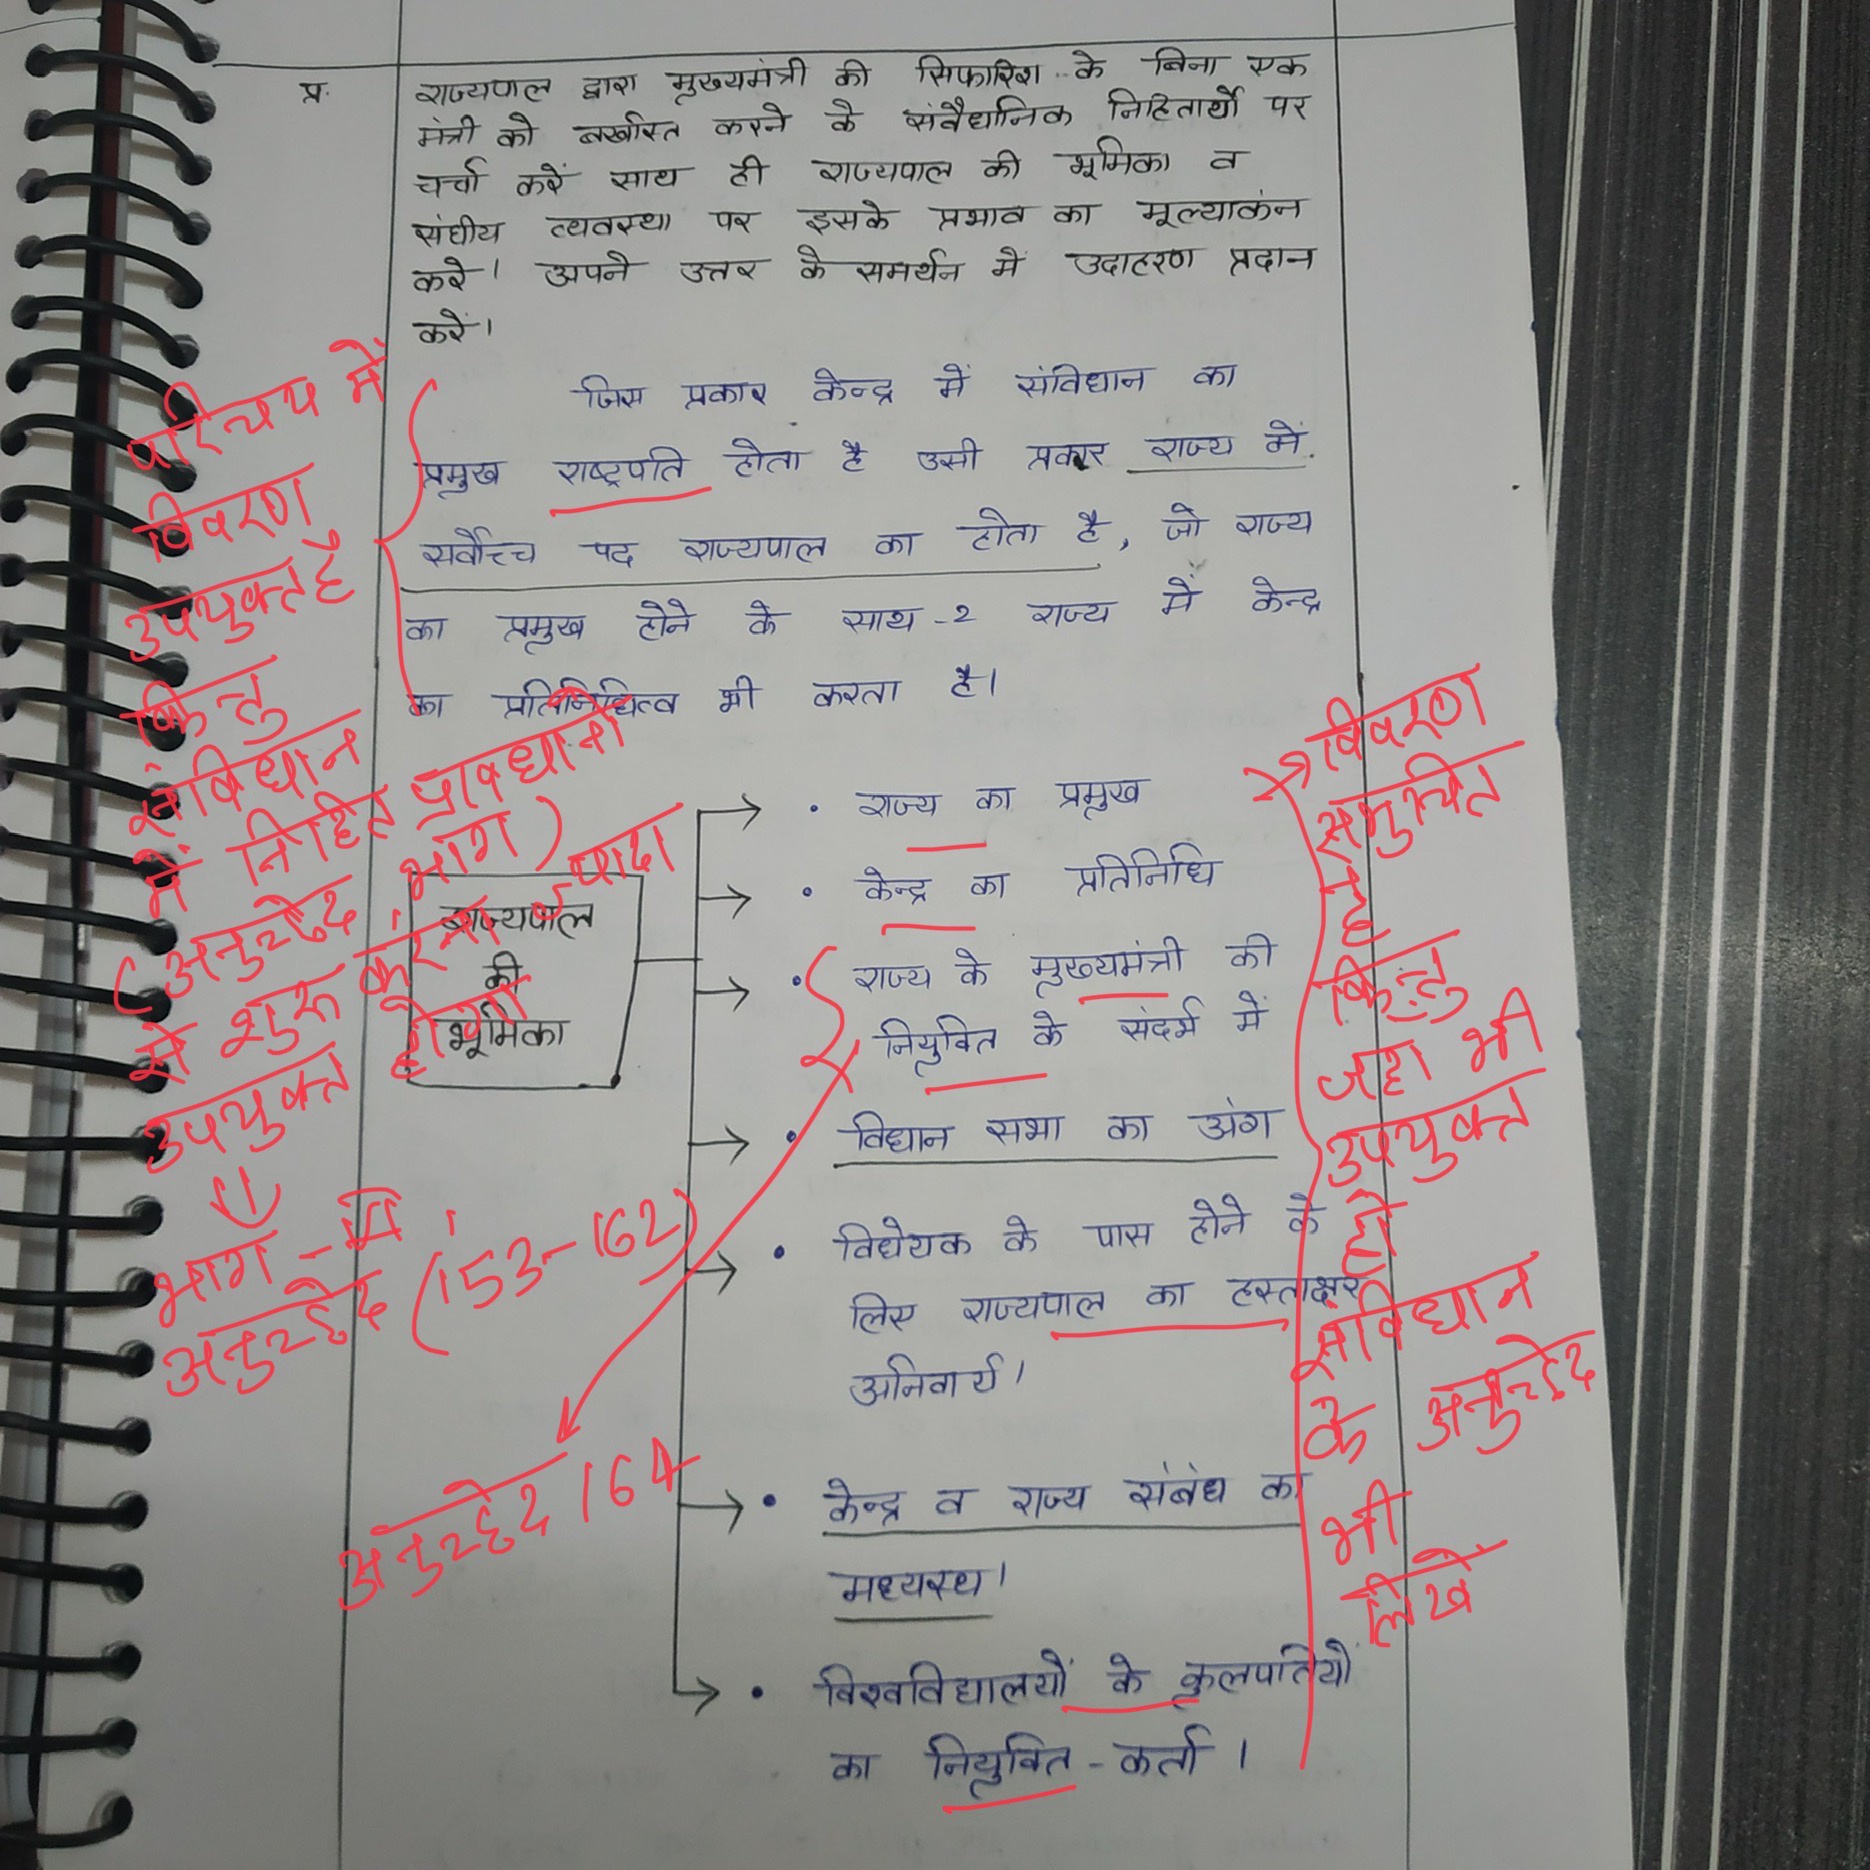 प्र.
राज्यपाल द्वारा मुख्यमंत्री की सिफारिश के बिना एक
मंत्री को बर्खास्त करने के संवैधानिक निहितार्थों पर
चर्चा करें साथ ही राज्यपाल की भूमिका व
संघीय व्यवस्था पर इसके प्रभाव का मूल्याकंन
करे। अपने उत्तर के समर्थन में उदाहरण प्रदान
करें।
जिस प्रकार केन्द्र में संविधान का
प्रमुख राष्ट्रपति होता है उसी प्रकार राज्य में
सर्वोच्च पद राज्यपाल का होता है, जो राज्य
का प्रमुख होने के साथ-2 राज्य में केन्द्र
का प्रतिनिधित्व भी करता है।
परिचय में
विवरण
उपयुक्त है
किन्तु
संविधान
में निहित प्रावधानों
(अनुच्छेद, भाग)
से शुरू करना ज्यादा
उपयुक्त होगा
भाग - VI,
अनुच्छेद (153-162)
राज्यपाल
की
भूमिका
• राज्य का प्रमुख
• केन्द्र का प्रतिनिधि
• राज्य के मुख्यमंत्री की
नियुक्ति के संदर्भ में
• विधान सभा का अंग
• विधेयक के पास होने के
लिए राज्यपाल का हस्ताक्षर
अनिवार्य।
अनुच्छेद 164
• केन्द्र व राज्य संबंध का
मध्यस्थ।
• विश्वविद्यालयों के कुलपतियों
का नियुक्ति-कर्ता।
विवरण
समुचित
है
किन्तु
जहा भी
उपयुक्त
हो
संविधान
के अनुच्छेद
भी
लिखें